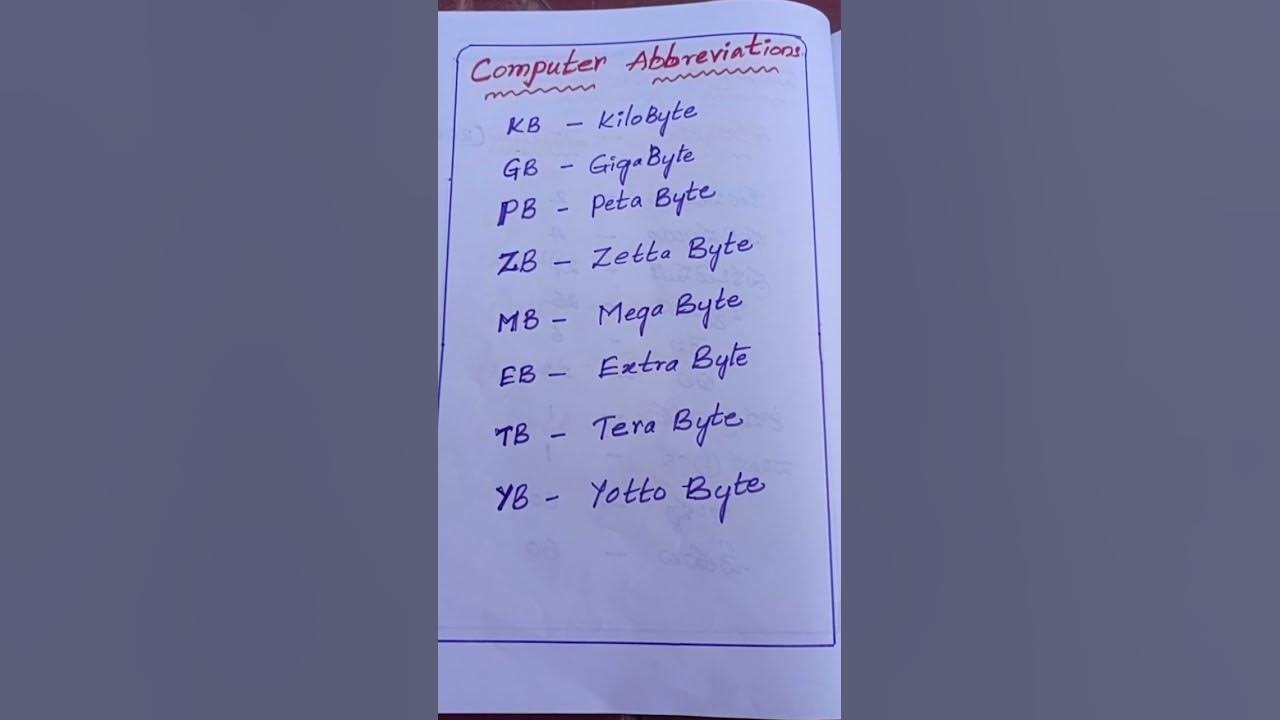 Computer Abbreviations
KB - KiloByte
GB - GigaByte
PB - Peta Byte
ZB - Zetta Byte
MB - Mega Byte
EB - Extra Byte
TB - Tera Byte
YB - Yotto Byte